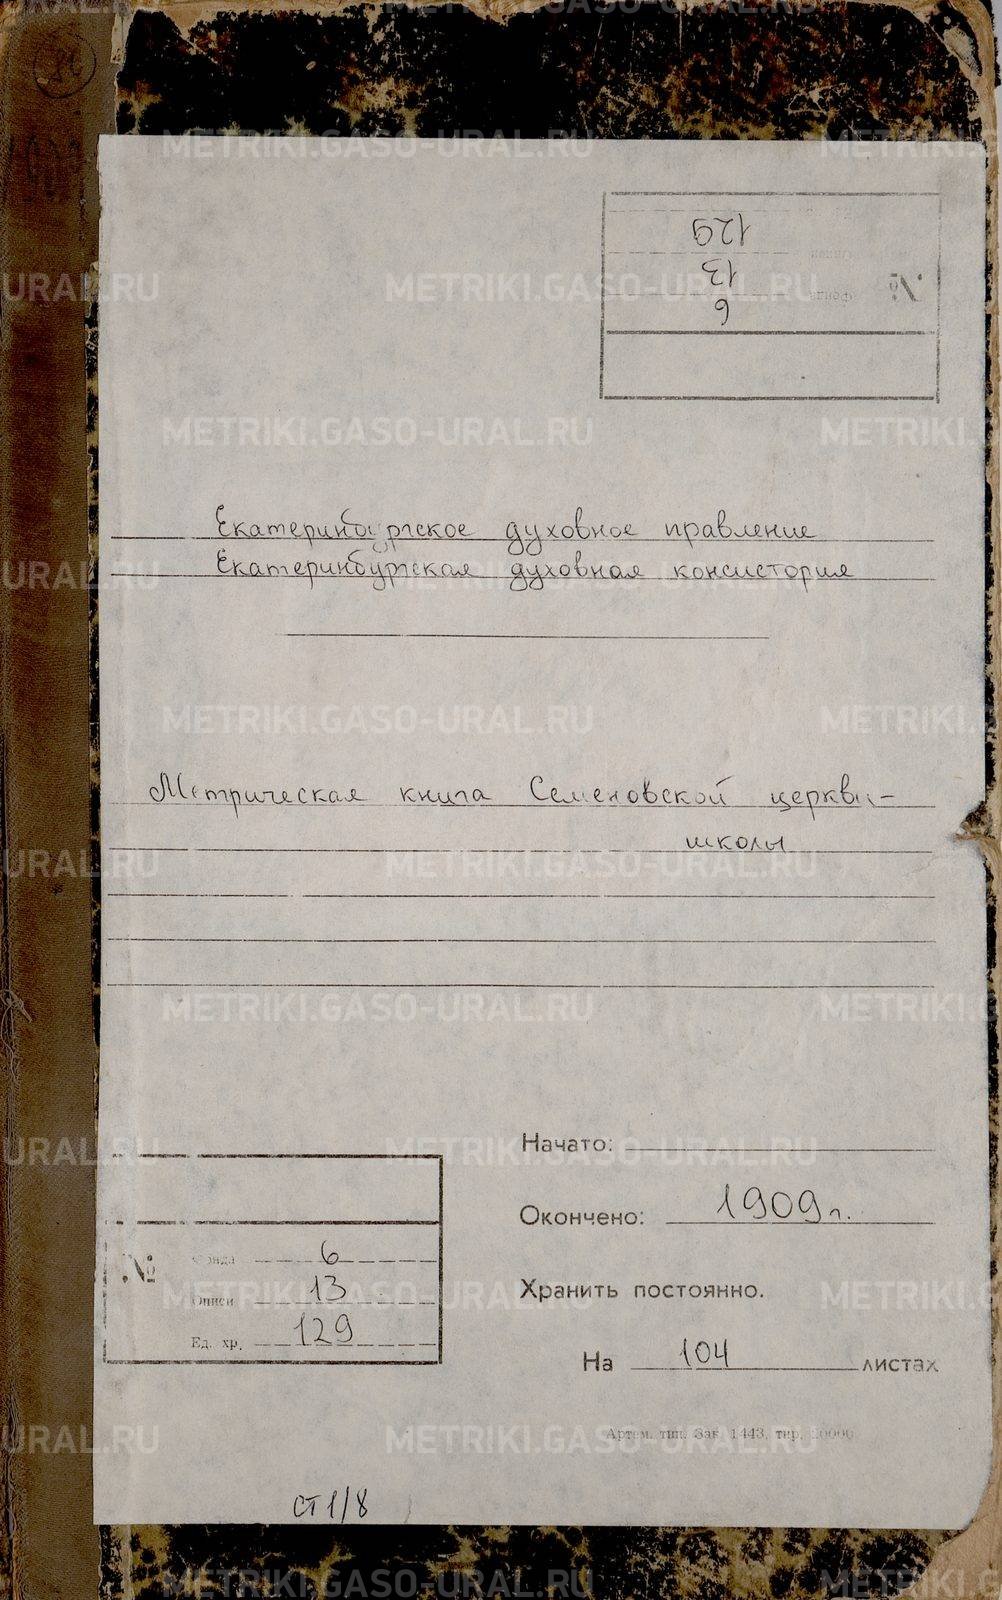 №
Фонда 6
Описи 13
Ед. хр. 129
Екатеринбургское духовное правление
Екатеринбургская духовная консистория
Метрическая книга Семеновской церкви-
школы
Начато:
Окончено: 1909 г.
Хранить постоянно.
№
Фонда 6
Описи 13
Ед. хр. 129
На 104 листах
Артем. тип. Зак. 1443, тир. 20000
ст 1/8
METRIKI.GASO-URAL.RU